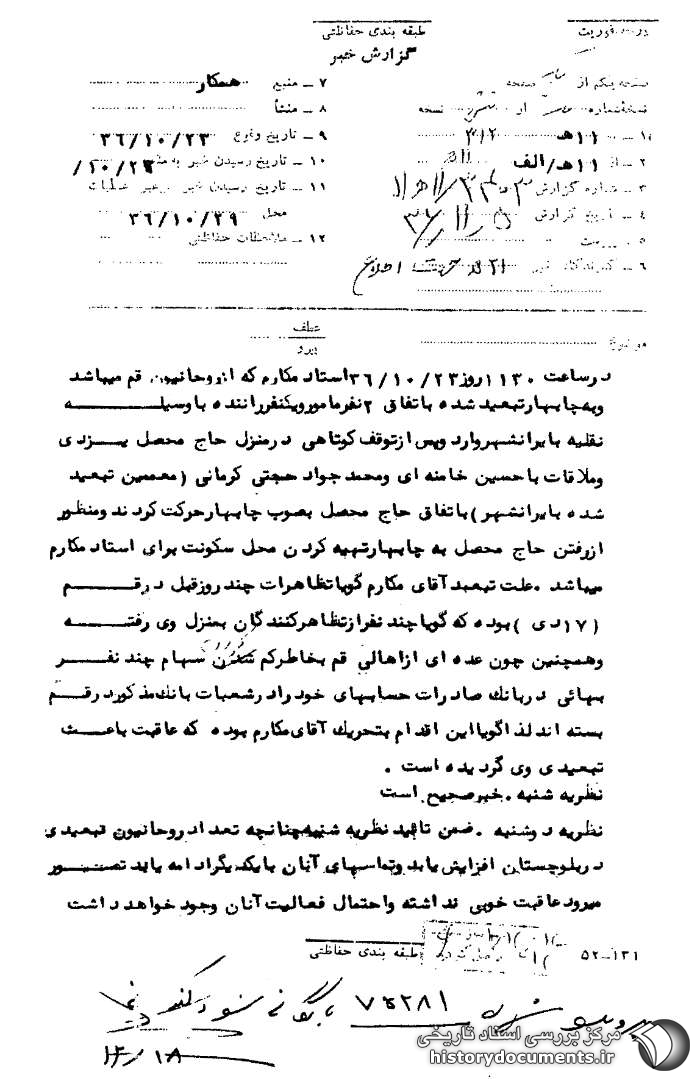 طبقه بندی حفاظتی
گزارش خبر
صفحه یکم از صفحه
نسخه شماره از نسخه
۱ـ ۱۱هـ ۳۱۲
۲ـ از ۱۱هـ/الف
۳ـ شماره گزارش
۴ـ تاریخ گزارش
۵ـ پیوست
۶ـ گیرندگان خبر
۷ـ منبع همکار
۸ـ منشأ
۹ـ تاریخ وقوع ۳۶/۱۰/۲۳
۱۰ـ تاریخ رسیدن خبر به منبع ۱۰/۲۴/
۱۱ـ تاریخ رسیدن خبر برهبر عملیات
محل ۳۶/۱۰/۲۹
۱۲ـ ملاحظات حفاظتی
موضوع
عطف
پیرو
درساعت ۱۱۳۰روز۳۶/۱۰/۲۳استاد مکارم که ازروحانیون قم میباشد
وبه چابهارتبعید شده باتفاق ۲نفرمامورویکنفرراننده باوسیله
نقلیه بایرانشهروارد وپس ازتوقف کوتاهی درمنزل حاج محصل یزدی
وملاقات باحسین خامنه ای ومحمد جواد حجتی کرمانی (معممین تبعید
شده بایرانشهر)باتفاق حاج محصل بصوب چابهارحرکت کردند ومنظور
ازرفتن حاج محصل به چابهارتهیه کردن محل سکونت برای استاد مکارم
میباشد .علت تبعید آقای مکارم گویاتظاهرات چند روزقبل درقم
(۱۷دی )بوده که گویاچند نفرازتظاهرکنندگان بمنزل وی رفته
وهمچنین چون عده ای ازاهالی قم بخاطرکم سهام چند نفر
بهائی دربانك صادرات حسابهای خود رادرشعبات بانك مذکوردرقم
بسته اند لذاگویااین اقدام بتحریك آقای مکارم بوده که عاقبت باعث
تبعیدی وی گردیده است .
نظریه شنبه .خبرصحیح است
نظریه دوشنبه .ضمن تائید نظریه شنبه چنانچه تعداد روحانیون تبعیدی
دربلوچستان افزایش یابد وتماسهای آنان بایکدیگرادامه یابد تصور
میرود عاقبت خوبی نداشته واحتمال فعالیت آنان وجود خواهد داشت
طبقه بندی حفاظتی
۵۲-۱۳۱
۷۵۲۸۱ بایگانی شود
مرکز بررسی اسناد تاریخی
historydocuments.ir